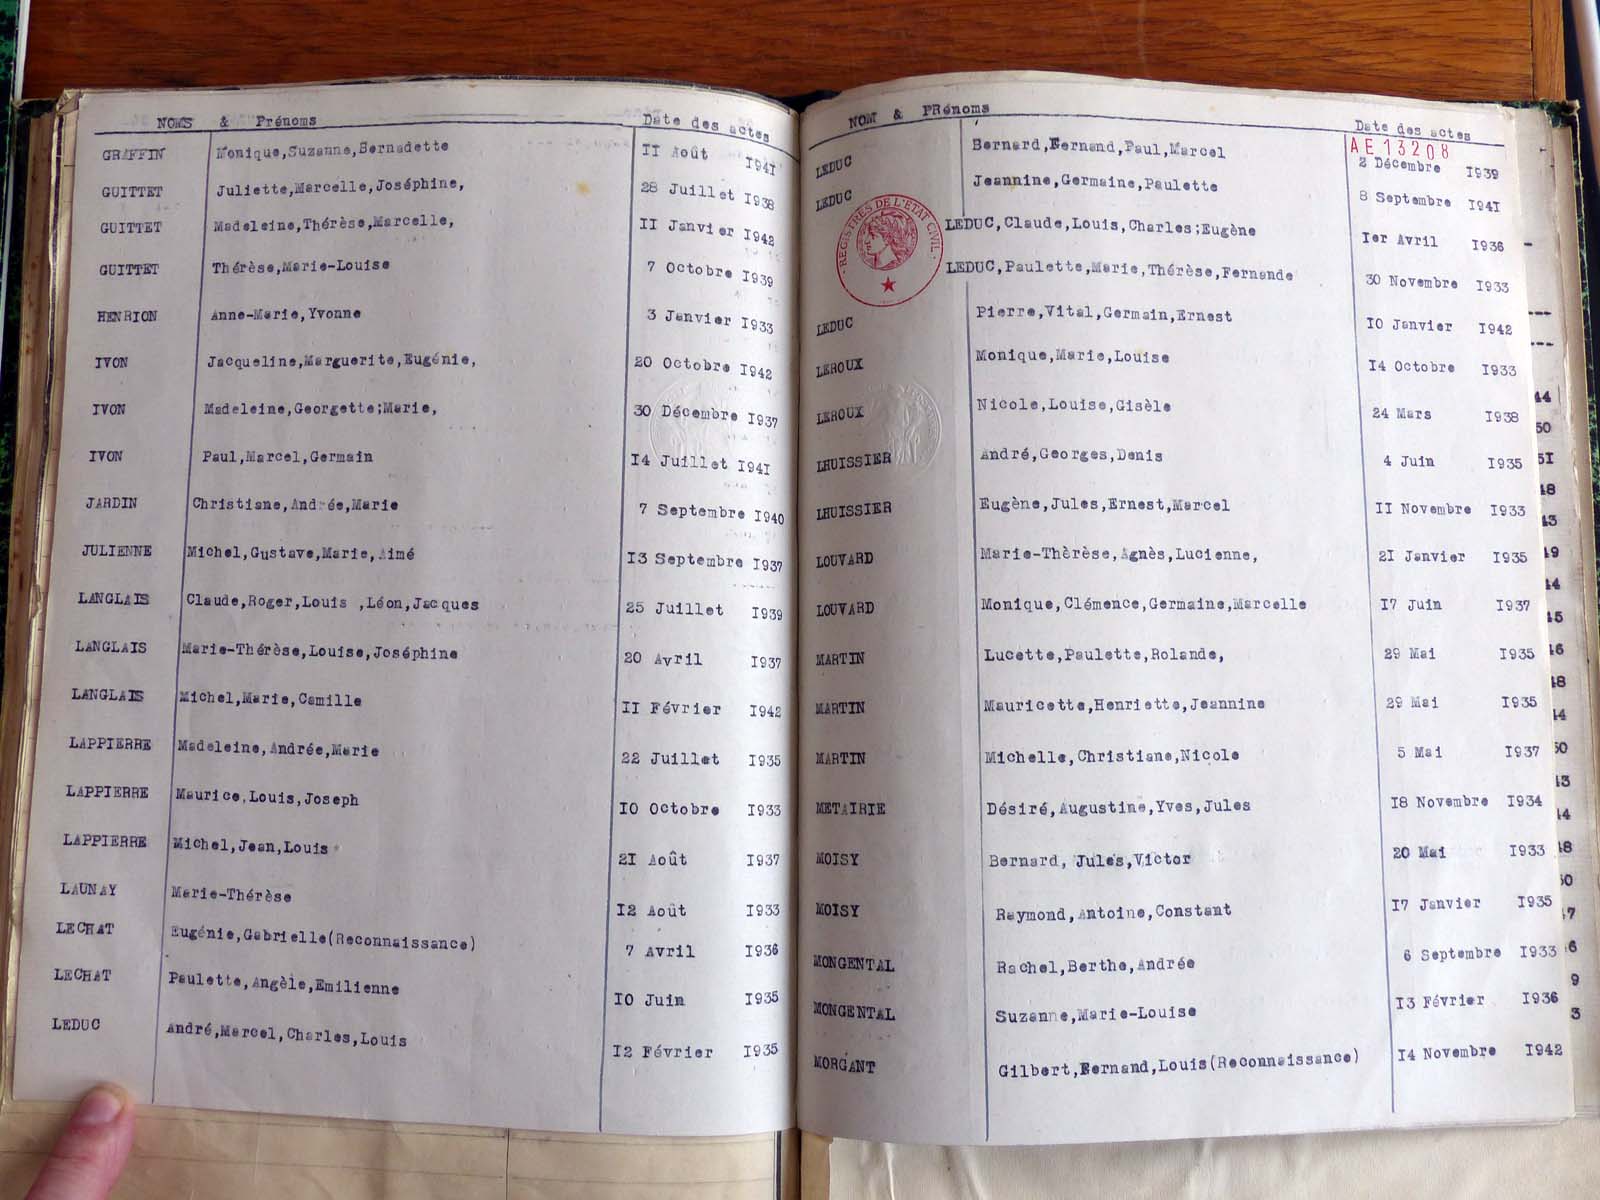 NOMS & Prénoms Date des actes
GRAFFIN Monique,Suzanne,Bernadette II Août I94I
GUITTET Juliette,Marcelle,Joséphine, 28 Juillet I938
GUITTET Madeleine,Thérèse,Marcelle, II Janvier I942
GUITTET Thérèse,Marie-Louise 7 Octobre I939
HENRION Anne-Marie,Yvonne 3 Janvier I933
IVON Jacqueline,Marguerite,Eugénie, 20 Octobre I942
IVON Madeleine,Georgette;Marie, 30 Décembre I937
IVON Paul,Marcel,Germain I4 Juillet I94I
JARDIN Christiane,Andrée,Marie 7 Septembre I940
JULIENNE Michel,Gustave,Marie,Aimé I3 Septembre I937
LANGLAIS Claude,Roger,Louis ,Léon,Jacques 25 Juillet I939
LANGLAIS Marie-Thérèse,Louise,Joséphine 20 Avril I937
LANGLAIS Michel,Marie,Camille II Février I942
LAPPIERRE Madeleine,Andrée,Marie 22 Juillet I935
LAPPIERRE Maurice,Louis,Joseph I0 Octobre I933
LAPPIERRE Michel,Jean,Louis 2I Août I937
LAUNAY Marie-Thérèse I2 Août I933
LECHAT Eugénie,Gabrielle(Reconnaissance) 7 Avril I936
LECHAT Paulette,Angèle,Emilienne I0 Juin I935
LEDUC André,Marcel,Charles,Louis I2 Février I935
NOM & PRénoms Date des actes
AE13208
LEDUC Bernard,Fernand,Paul,Marcel 2 Décembre I939
LEDUC Jeannine,Germaine,Paulette 8 Septembre I94I
REGISTRES DE L'ÉTAT CIVIL
LEDUC,Claude,Louis,Charles;Eugène Ier Avril I936
LEDUC,Paulette,Marie,Thérèse,Fernande 30 Novembre I933
LEDUC Pierre,Vital,Germain,Ernest I0 Janvier I942
LEROUX Monique,Marie,Louise I4 Octobre I933
LEROUX Nicole,Louise,Gisèle 24 Mars I938
LHUISSIER André,Georges,Denis 4 Juin I935
LHUISSIER Eugène,Jules,Ernest,Marcel II Novembre I933
LOUVARD Marie-Thèrèse,Agnès,Lucienne, 2I Janvier I935
LOUVARD Monique,Clémence,Germaine,Marcelle I7 Juin I937
MARTIN Lucette,Paulette,Rolande, 29 Mai I935
MARTIN Mauricette,Henriette,Jeannine 29 Mai I935
MARTIN Michelle,Christiane,Nicole 5 Mai I937
METAIRIE Désiré,Augustine,Yves,Jules I8 Novembre I934
MOISY Bernard, Jules,Victor 20 Mai I933
MOISY Raymond,Antoine,Constant I7 Janvier I935
MONGENTAL Rachel,Berthe,Andrée 6 Septembre I933
MONGENTAL Suzanne,Marie-Louise I3 Février I936
MORGANT Gilbert,Fernand,Louis(Reconnaissance) I4 Novembre I942